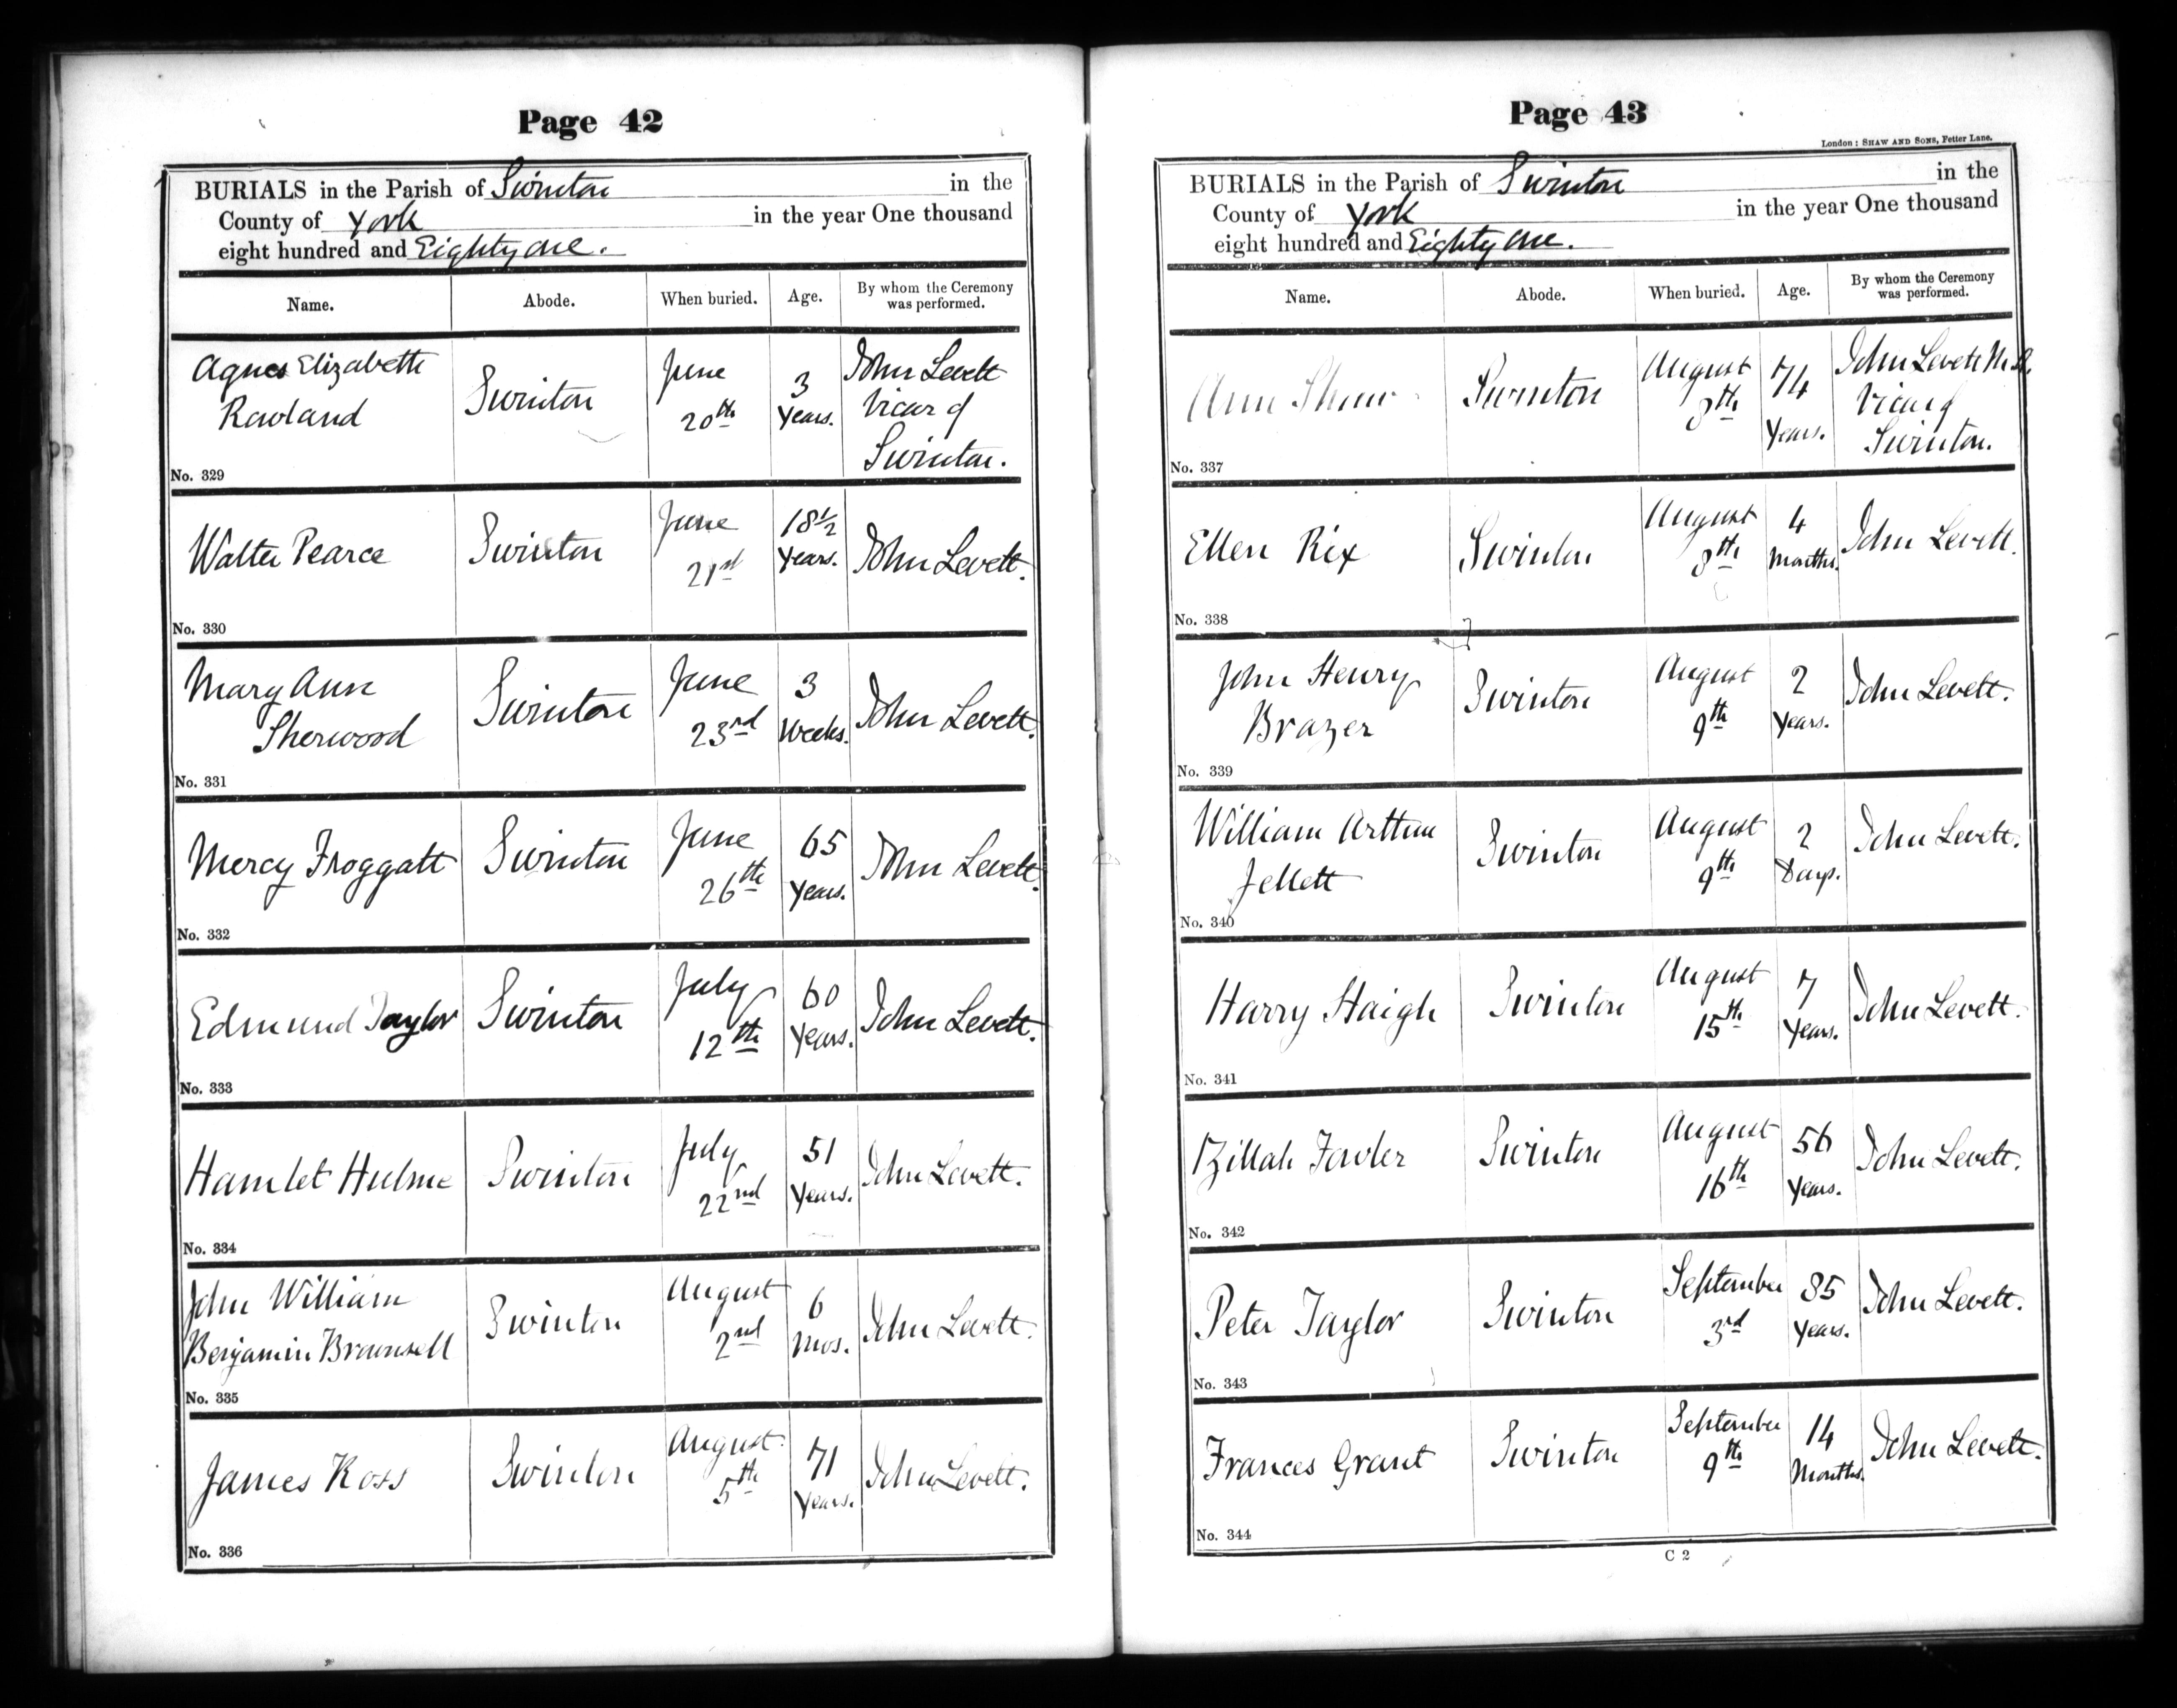 Page 42
BURIALS in the Parish of Swinton in the
County of York in the year One thousand
eight hundred and Eighty one.
Name. Abode. When buried. Age. By whom the Ceremony was performed.
Agnes Elizabeth
Rowland
Swinton
June
20th
3
Years.
John Levett
Vicar of
Swinton.
No. 329
Walter Pearce
Swinton
June
21st
18½
Years.
John Levett.
No. 330
Mary Ann
Sherwood
Swinton
June
23rd
3
Weeks.
John Levett.
No. 331
Mercy Froggatt
Swinton
June
26th
65
Years.
John Levett.
No. 332
Edmund Taylor
Swinton
July
12th
60
Years.
John Levett.
No. 333
Hamlet Hulme
Swinton
July
22nd
51
Years.
John Levett.
No. 334
John William
Benjamin Brownsell
Swinton
August
2nd
6
Mos.
John Levett.
No. 335
James Ross
Swinton
August
5th
71
Years.
John Levett.
No. 336
Page 43
London: SHAW AND SONS, Fetter Lane.
BURIALS in the Parish of Swinton in the
County of York in the year One thousand
eight hundred and Eighty one.
Name. Abode. When buried. Age. By whom the Ceremony was performed.
Ann Shaw
Swinton
August
8th
74
Years.
John Levett M.A.
Vicar of
Swinton.
No. 337
Ellen Rix
Swinton
August
8th
4
Months.
John Levett.
No. 338
John Henry
Brazer
Swinton
August
9th
2
Years.
John Levett.
No. 339
William Arthur
Jellett
Swinton
August
9th
2
Days.
John Levett.
No. 340
Harry Haigh
Swinton
August
15th
7
Years.
John Levett.
No. 341
Zillah Fowler
Swinton
August
16th
56
Years.
John Levett.
No. 342
Peter Taylor
Swinton
September
3rd
35
Years.
John Levett.
No. 343
Frances Grant
Swinton
September
9th
14
Months.
John Levett.
No. 344
C 2